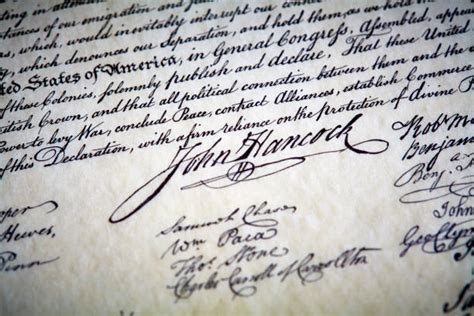 tances of our emigration and
which, would inevitably interrupt our conne
which denounces our Separation, and hold them, as we hold
ted States of America, in General Congress, Assembled, appea
of these Colonies, solemnly publish and declare, That these United
itish Crown, and that all political connection between them and the
Power to levy War, conclude Peace, contract Alliances, establish Commerce
of this Declaration, with a firm reliance on the protection of divine P
John Hancock
Robt Mo
Benjamin
Benj.
John
Geo Clym
ooper
Hewes,
Penn
Samuel Chase
Wm Paca
Thos. Stone
Charles Carroll of Carrollton